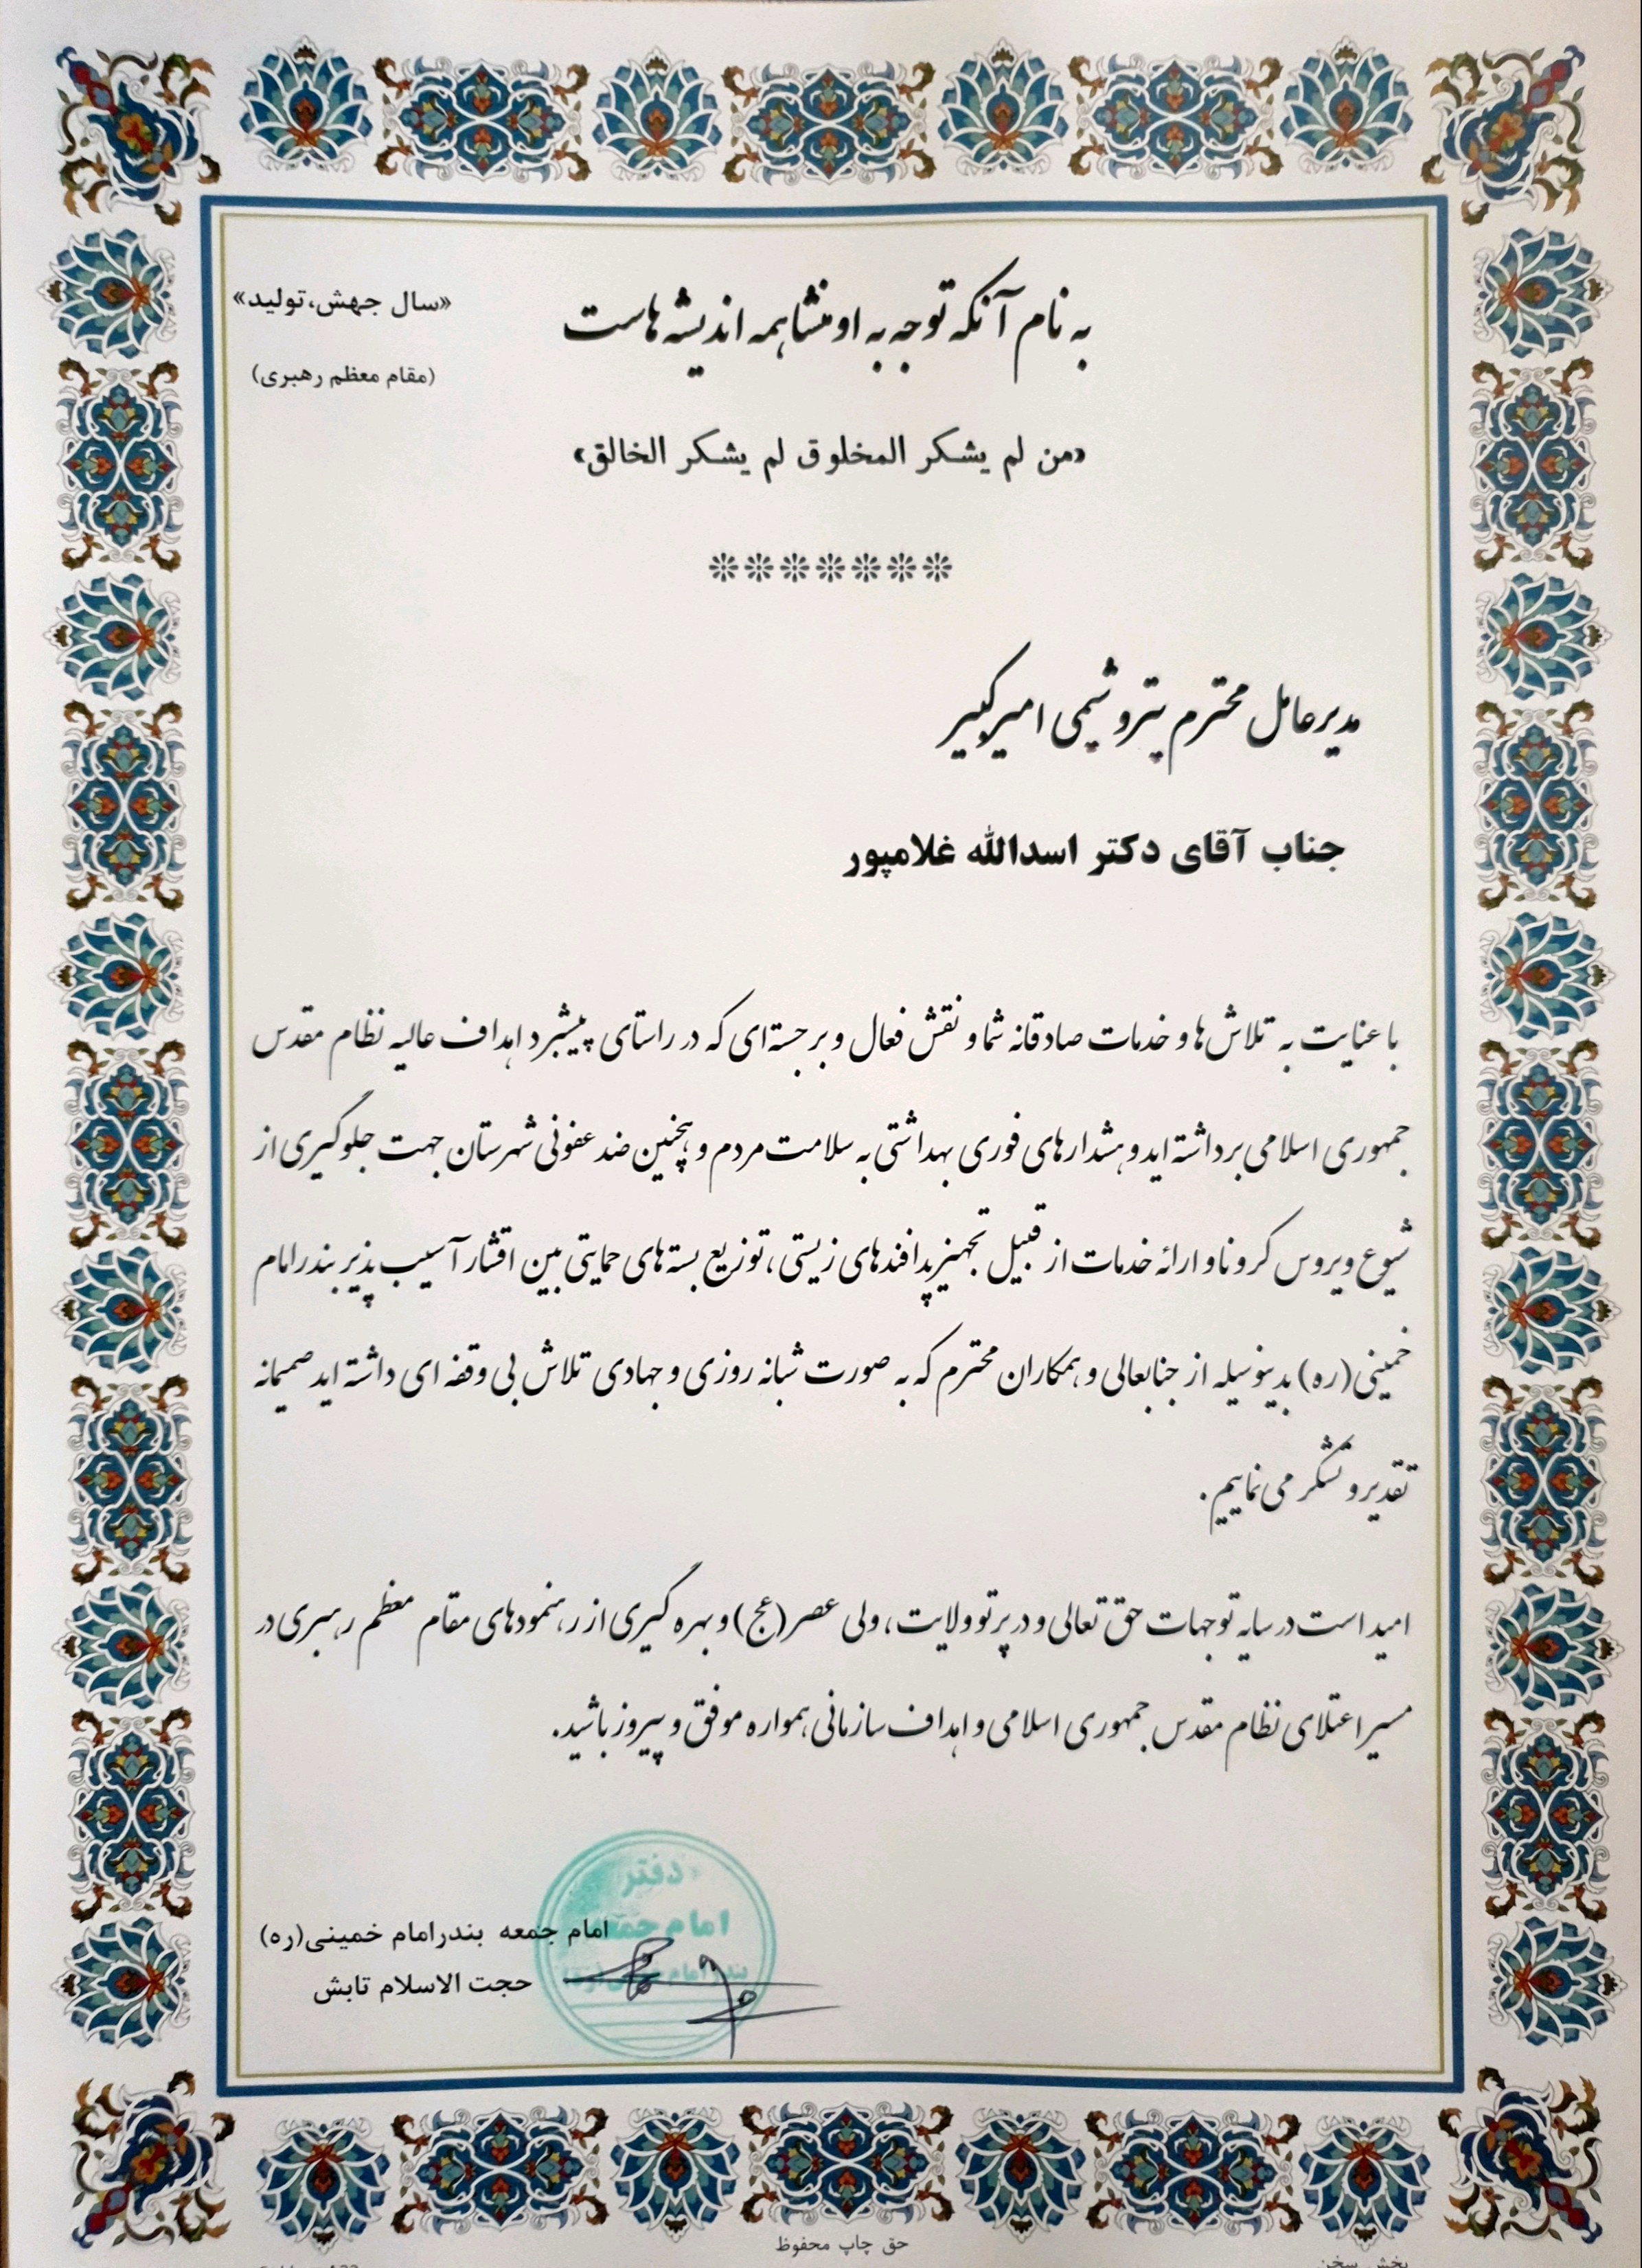 به نام آنکه توجه به او منشا همه اندیشه هاست
«سال جهش،تولید»
(مقام معظم رهبری)
«من لم یشکر المخلوق لم یشکر الخالق»
مدیرعامل محترم پتروشیمی امیرکبیر
جناب آقای دکتر اسدالله غلامپور
با عنایت به تلاش‌ها و خدمات صادقانه شما و نقش فعال و برجسته‌ای که در راستای پیشبرد اهداف عالیه نظام مقدس
جمهوری اسلامی برداشته اید و هشدارهای فوری بهداشتی به سلامت مردم و همچنین ضد عفونی شهرستان جهت جلوگیری از
شیوع ویروس کرونا و ارائه خدمات از قبیل تجهیز پدافندهای زیستی، توزیع بسته‌های حمایتی بین اقشار آسیب پذیر بندرامام
خمینی(ره) بدینوسیله از جنابعالی و همکاران محترم که به صورت شبانه روزی و جهادی تلاش بی وقفه ای داشته اید صمیمانه
تقدیر و تشکر می نماییم.
امید است در سایه توجهات حق تعالی و در پرتو ولایت، ولی عصر(عج) و بهره گیری از رهنمودهای مقام معظم رهبری در
مسیر اعتلای نظام مقدس جمهوری اسلامی و اهداف سازمانی همواره موفق و پیروز باشید.
دفتر
امام جمعه
بندر امام خمینی (ره)
امام جمعه بندرامام خمینی(ره)
حجت الاسلام تابش
حق چاپ محفوظ
پخش سخن